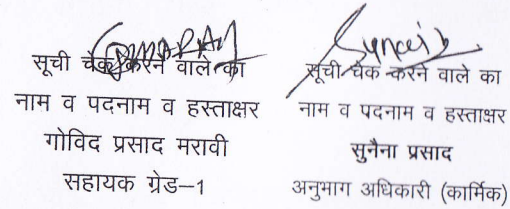 सूची चेक करने वाले का
नाम व पदनाम व हस्ताक्षर
गोविद प्रसाद मरावी
सहायक ग्रेड–1
सूची चेक करने वाले का
नाम व पदनाम व हस्ताक्षर
सुनैना प्रसाद
अनुभाग अधिकारी (कार्मिक)